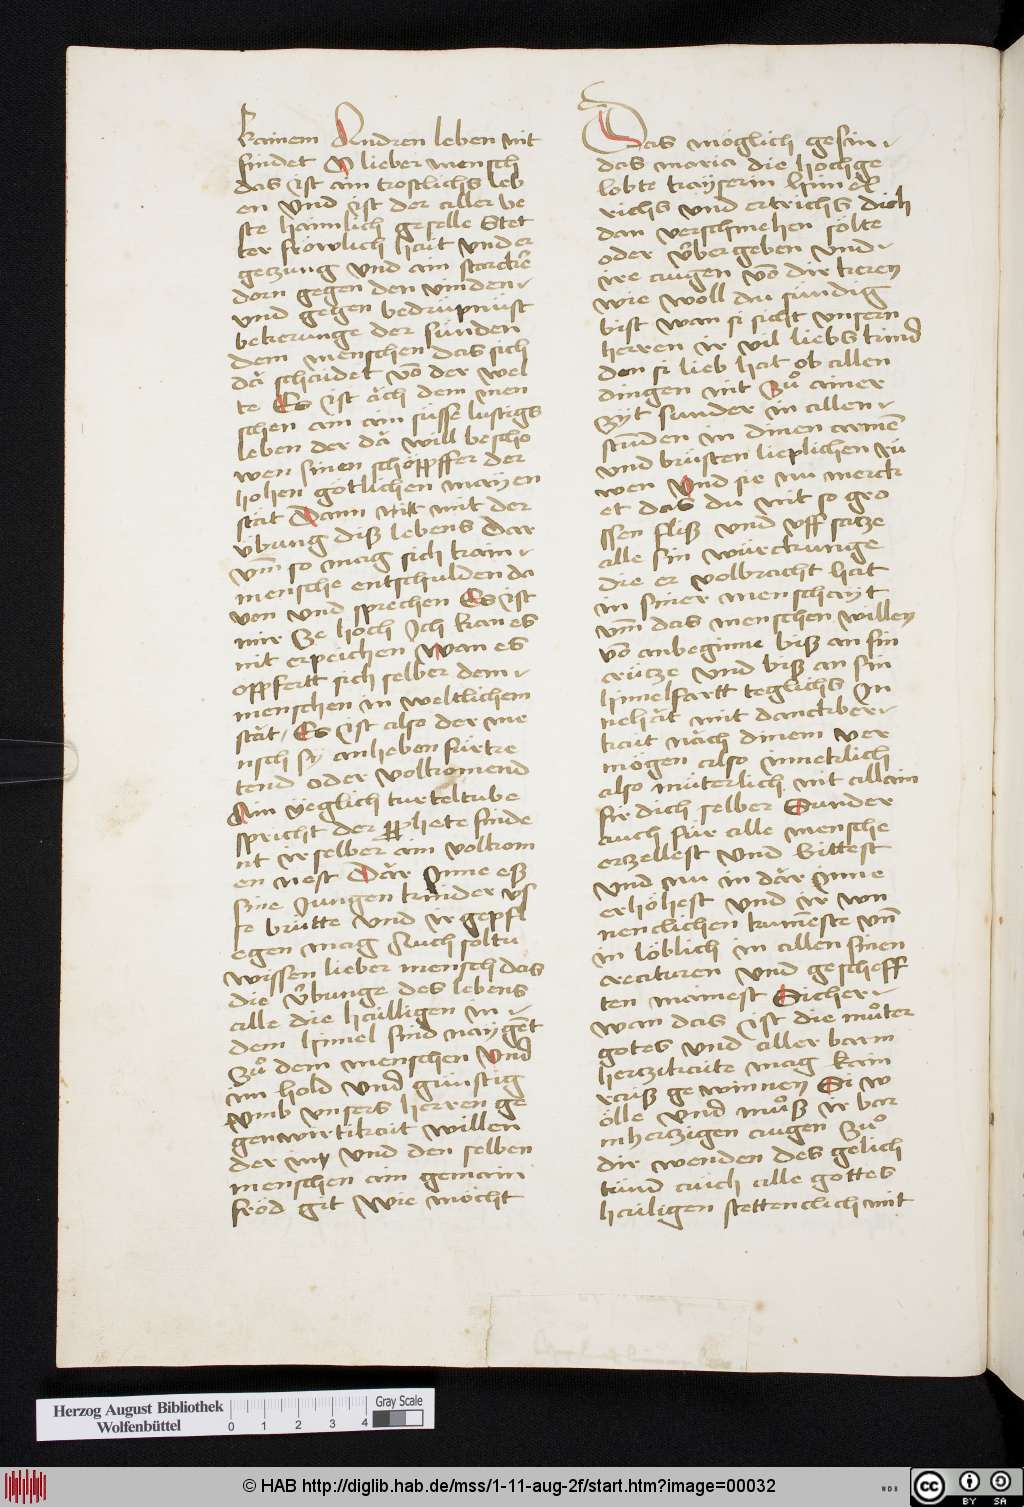 kainem Andren leben nit
findet O lieber mensch
das ist ain trostlichs leb
en Und ist der aller be
ste haimlich geselle Stet
ter frölich hait und er
geczung und ain starckē
dorn gegen den vinden
und gegen bedrüpnüst
bekerunge der sünden
dem menschen das sich
dā schaidet vō der wel
te Es ist äch dem men
schen ain ain süsse lustigs
leben der dā will bescho
wen sinen schöppffer der
hohen götlichen mayen
stät Dann nitt mit der
übung diß lebens Dar
vm̄ so mag sich kain
mensche entschulden da
von und sprechen Es ist
mir ze hoch Ich kan es
nit erpeichen Wan es
opffertt sich selber dem
menschen in weltlichem
stät Es ist also der me
nsch sy anheben fürtre
tend oder volkomend
Ain yeglich turteltube
spricht der pphete finde
nt ir selber ain volkom
en nest Där Inne eß
sine Jungen kinder vs
te brütte und ir gepfl
egen mag Auch soltu
wissen lieber mensch das
die übunge des lebens
alle die hailligen in
dem himel sind naygēt
zů dem menschen Und
im hold und günstig
Umb unsers herren ge
genwirtikait willen
der in und den selben
menschen ain gemain
fröd git Wie möcht
Das möglich gesin
das maria die hochge
lobte kayserin himel
richs und ertrichs dich
dan verschmehen sölte
oder übergeben und
ire augen vō dir keren
wie woll du sündig
bist wan si sicht unsern
herren ir vil liebs kind
den si lieb hat ob allen
dingen nit zů ainer
zyt sunder in allen
stunden in dinen armē
und brüsten lieplichen rü
wen Und sie nu merck
et das du mit so gro
ssen fliß und uff satze
alle sin würckunge
die er volbracht hat
in siner menschayt
vm̄ das menschen willen
vō anbeginne biß an sin
crütze und biß an sin
himelfartt teglichs In
nehāt mit danckber
kait näch dinem ver
mögen also innerlich
also müterlich nit allain
fir dich selber Sunder
auch für alle mensche
erzellest und bittest
und nu in där Inne
erhöhest und ir wn
nenclichen kumēste vn̄
in löblich in allen sinen
creaturen und gescheff
ten mainest Sicher
wan das ist die můter
gotes und aller barm
herczikaite mag kain
raiß gewinnen Si w
ölle und můß ir bar
mherczigen augen zů
dir wenden des gelich
tůnd auch alle gottes
hailigen stettenclich mit
Herzog August Bibliothek
Wolfenbüttel
0 1 2 3 4
Gray Scale
© HAB http://diglib.hab.de/mss/1-11-aug-2f/start.htm?image=00032
WDB
CC BY SA